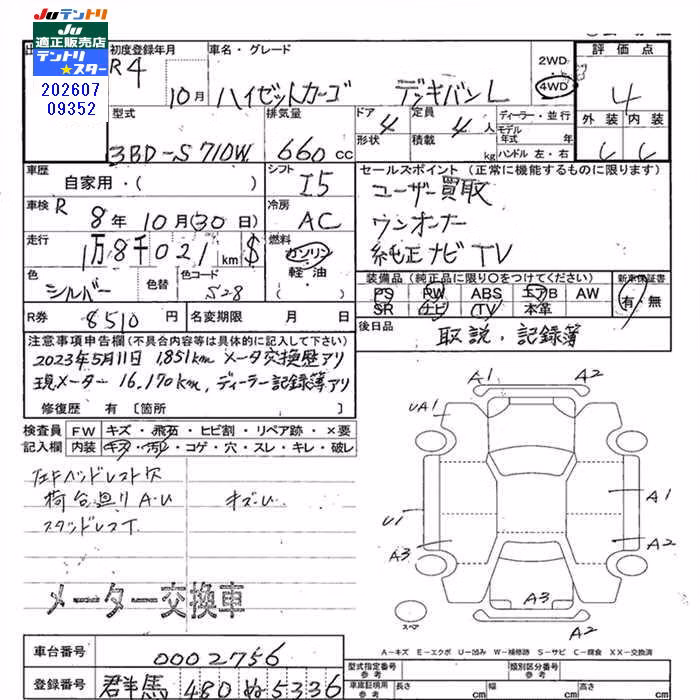 Juテントリ
Ju
適正販売店
テントリ
★スター
202607
09352
初度登録年月
R4
10月
車名・グレード
ハイゼットカーゴ デッキバンL
2WD
4WD
評価点
4
外装 内装
C C
型式
3BD-S710W
排気量
660cc
ドア 4
形状
定員 4人
積載 kg
ディーラー・並行
モデル年式 年
ハンドル 左・右
車歴
自家用・( )
シフト
I5
セールスポイント(正常に機能するものに限ります)
ユーザー買取
ワンオーナー
純正ナビTV
車検
R 8年10月(30日)
冷房
AC
走行
1万8千021km $
燃料
ガソリン
軽・油
( )
色
シルバー
色替
色コード
S28
装備品(純正品に限り○をつけてください)
PS PW ABS エアB AW
SR ナビ TV 本革
新車保証書
有・無
R券
8510円
名変期限 月 日
後日品
取説・記録簿
注意事項申告欄(不具合内容等は具体的に記入して下さい)
2023年5月11日 1,851km メータ交換歴アリ
現メーター 16,170km, ディーラー記録簿アリ
修復歴 有 〔箇所
検査員
記入欄
FW キズ・飛石・ヒビ割・リペア跡・×要
内装 キズ・汚レ・コゲ・穴・スレ・キレ・破レ
左Fヘッドレスト穴
荷台廻りA・U キズU
スタッドレスT
メーター交換車
A1 A2
UA1
U1
A3
A1
A2
A3
A2
スペア
A-キズ E-エクボ U-凹み W-補修跡 S-サビ C-腐食 XX-交換済
車台番号
0002756
登録番号
群馬 480 ぬ 5336
型式指定番号
参考
類別区分番号
参考
車庫証明用
参考
長さ cm
幅 cm
高さ cm